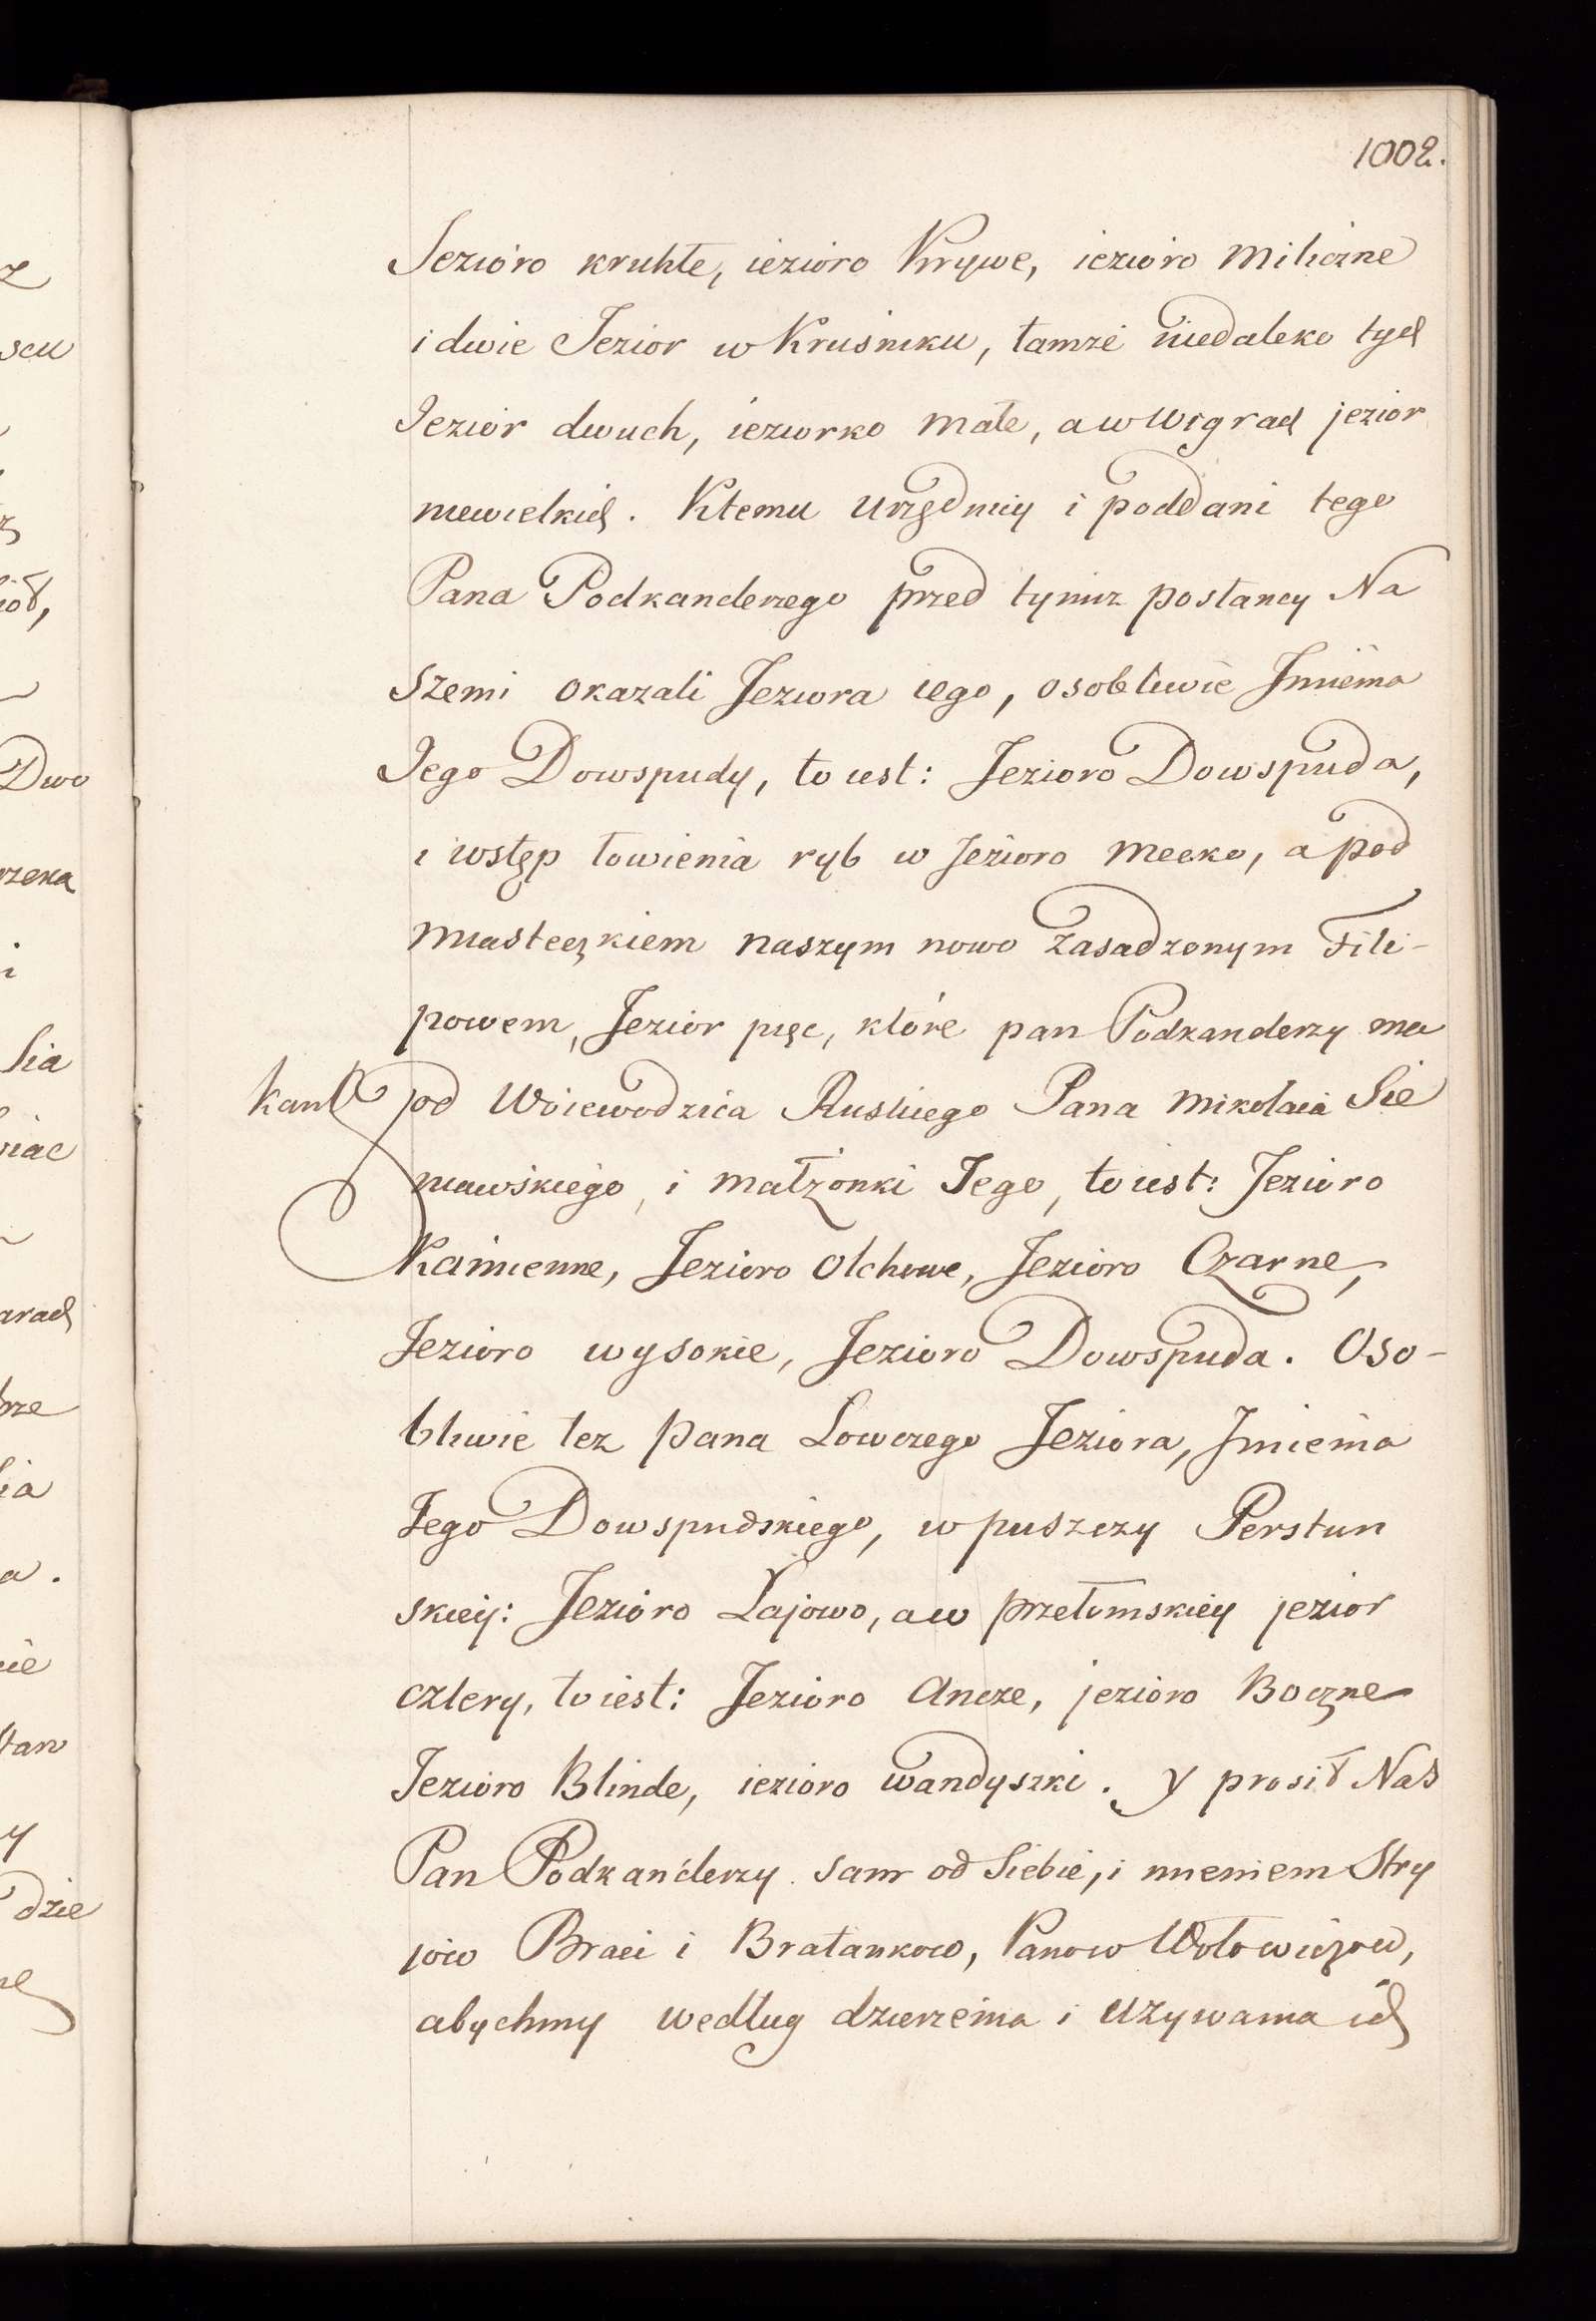 1002.
Jezioro kruhłe, iezioro Krzywe, iezioro Miliczne
i dwie Jezior w Kruśniku, tamże niedaleko tych
Jezior dwuch, ieziorko małe, a w Wigrach jezior
niewielkich. Ktemu Urzędnicy i poddani tego
Pana Podkanclerzego przed tymiz posłancy Na
szemi okazali Jeziora iego, osobliwie Jmienia
Jego Dowspudy, to iest: Jezioro Dowspuda,
i wstęp łowienia ryb w Jezioro Meeko, a pod
Miasteczkiem naszym nowo Zasadzonym Fili-
powem, Jezior pięc, które pan Podkanclerzy ma
od Woiewodzica Ruskiego Pana Mikołaia Sie
niawskiego, i małżonki Jego, to iest: Jezioro
Kamienne, Jezioro Olchowe, Jezioro Czarne,
Jezioro wysokie, Jezioro Dowspuda. Oso-
bliwie tez pana Łowczego Jeziora, Jmienia
Jego Dowspudskiego, w puszczy Perstun
skiey: Jezioro Łajowo, a w przełomskiey jezior
cztery, to iest: Jezioro Ancze, jezioro Boczne
Jezioro Blinde, iezioro Wandyszki. Y prosił Nas
Pan Podkanclerzy sam od Siebie, i imieniem Stry
iow Braci i Bratankow, Panow Wołowiczow,
abychmy według dzierzenia i uzywania ich
sen
Dwo
rzeka
Sia
niac
brze
dzie